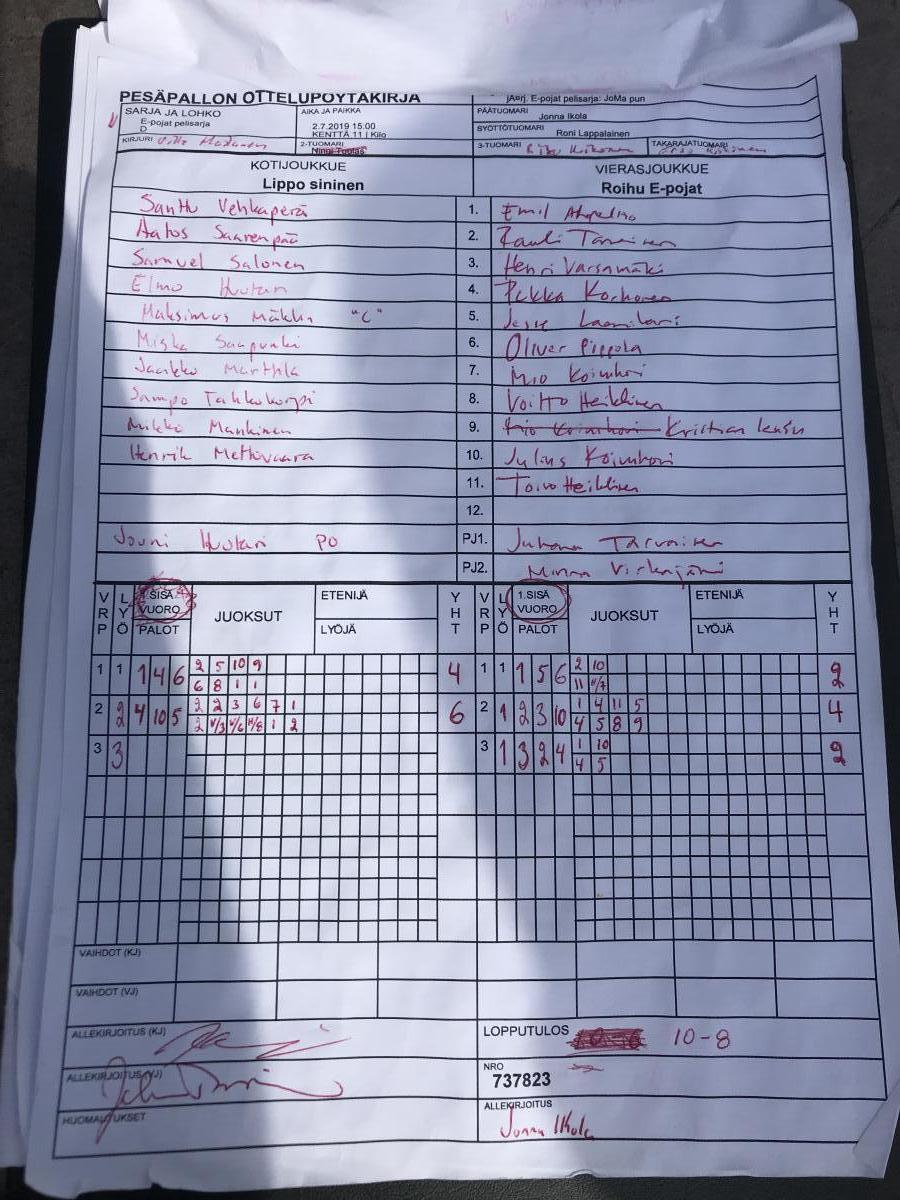 PESÄPALLON OTTELUPÖYTÄKIRJA
SARJA JA LOHKO
E-pojat pelisarja
D
AIKA JA PAIKKA
2.7.2019 15.00
KENTTÄ 11 | Kilo
jÄerj. E-pojat pelisarja: JoMa pun
PÄÄTUOMARI
Jonna Ikola
SYÖTTÖTUOMARI
Roni Lappalainen
KIRJURI
2-TUOMARI
3-TUOMARI
TAKARAJATUOMARI
KOTIJOUKKUE
Lippo sininen
VIERASJOUKKUE
Roihu E-pojat
Santtu Vehkaperä 1. Emil
Aatos Saarenpää 2.
Samuel Salonen 3. Henri Varsamäki
Elmo Huotari 4. Pekka Korhonen
Maksimus Mäkká "C" 5. Jesse
Miska Saapunki 6. Oliver Pippola
Jaakko Marttila 7. Mio Koivukori
Sampo Takkokorpi 8. Voitto Heikkinen
Mikko Mankinen 9. Kristian
Henrik Mettovaara 10. Julius
11. Toivo Heikkinen
12.
Jouni Huotari PO PJ1. Juhana Tarvainen
PJ2. Minna
VRP LYÖ 1.SISÄ VUORO PALOT JUOKSUT ETENIJÄ LYÖJÄ YHT VRP LYÖ 1.SISÄ VUORO PALOT JUOKSUT ETENIJÄ LYÖJÄ YHT
1 1 1 4 6 2 5 10 9 4 1 1 1 5 6 2 10 2
6 8 1 1 11 4/7
2 2 4 10 5 2 2 3 6 7 1 6 2 1 2 3 10 1 4 11 5 4
2 4/3 4/6 4/8 1 2 4 5 8 9
3 3 3 1 3 2 4 1 10 2
4 5
VAIHDOT (KJ)
VAIHDOT (VJ)
ALLEKIRJOITUS (KJ)
LOPPUTULOS 10-8
ALLEKIRJOITUS (VJ)
NRO
737823
HUOMAUTUKSET
ALLEKIRJOITUS
Jonna Ikola